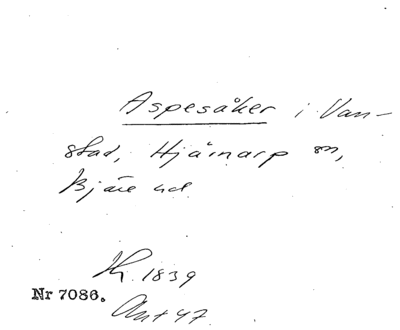 Aspesåker i Van-
stad, Hjärnarp sn,
Bjäre hd
1839
Nr 7086.
Akt 47